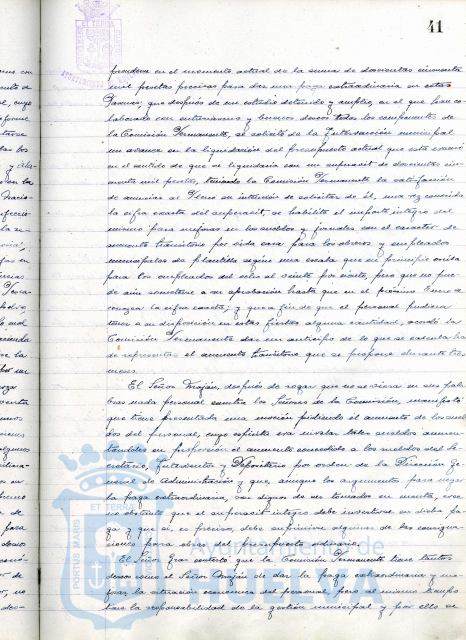 41
pondera en el momento actual de la suma de doscientas cincuenta
mil pesetas precisas para dar una paga extraordinaria en estas
Pascuas; que después de un estudio detenido y amplio, en el que han co-
laborado con entusiasmo y buenos deseos todos los componentes de
la Comisión Permanente, se solicitó de la Intervención municipal
un avance en la liquidación del presupuesto actual que esta evacuó
en el sentido de que se liquidaría con un superavit de doscientas cin-
cuenta mil pesetas, teniendo la Comisión Permanente la satisfacción
de anunciar al Pleno su intención de solicitar de él, una vez conocida
la cifra exacta del superavit, se habilite el importe íntegro del
mismo para mejoras en los sueldos y jornales con el caracter de
aumento transitorio por vida cara para los obreros y empleados
municipales de plantilla según una escala que en principio oscila
para los empleados del ocho al veinte por ciento, pero que no pue-
de aún someterse a su aprobación hasta que en el próximo Enero se
conozca la cifra exacta, y que a fin de que el personal pudiera
tener a su disposición en estas fiestas alguna cantidad, acordó la
Comisión Permanente dar un anticipo de lo que se calcula ha
de representar el aumento transitorio que se propone durante tres
meses.
El Señor Maján, después de rogar que no se viera en sus pala-
bras nada personal contra los Señores de la Comisión, manifestó
que tiene presentada una moción pidiendo el aumento de los suel-
dos del personal, cuyo espíritu era nivelar todos aquellos aumen-
tándolos en proporción al aumento concedido a los sueldos del Se-
cretario, Interventor y Depositario por orden de la Dirección Ge-
neral de Administración y que, aunque los argumentos para negar
la paga extraordinaria, son dignos de ser tomados en cuenta, cree
no obstante que el superavit íntegro debe invertirse en dicha pa-
ga y que si es preciso, debe suprimirse alguna de las consigna-
ciones para obras del presupuesto ordinario.
El Señor Gras contestó que la Comisión Permanente tiene tantos
deseos como el Señor Maján de dar la paga extraordinaria y me-
jorar la situación económica del personal pero al mismo tiempo
tiene la responsabilidad de la gestión municipal y por ello se
Ayuntamiento de
HUELVA
PORTUS MARIS
ET TERRAE